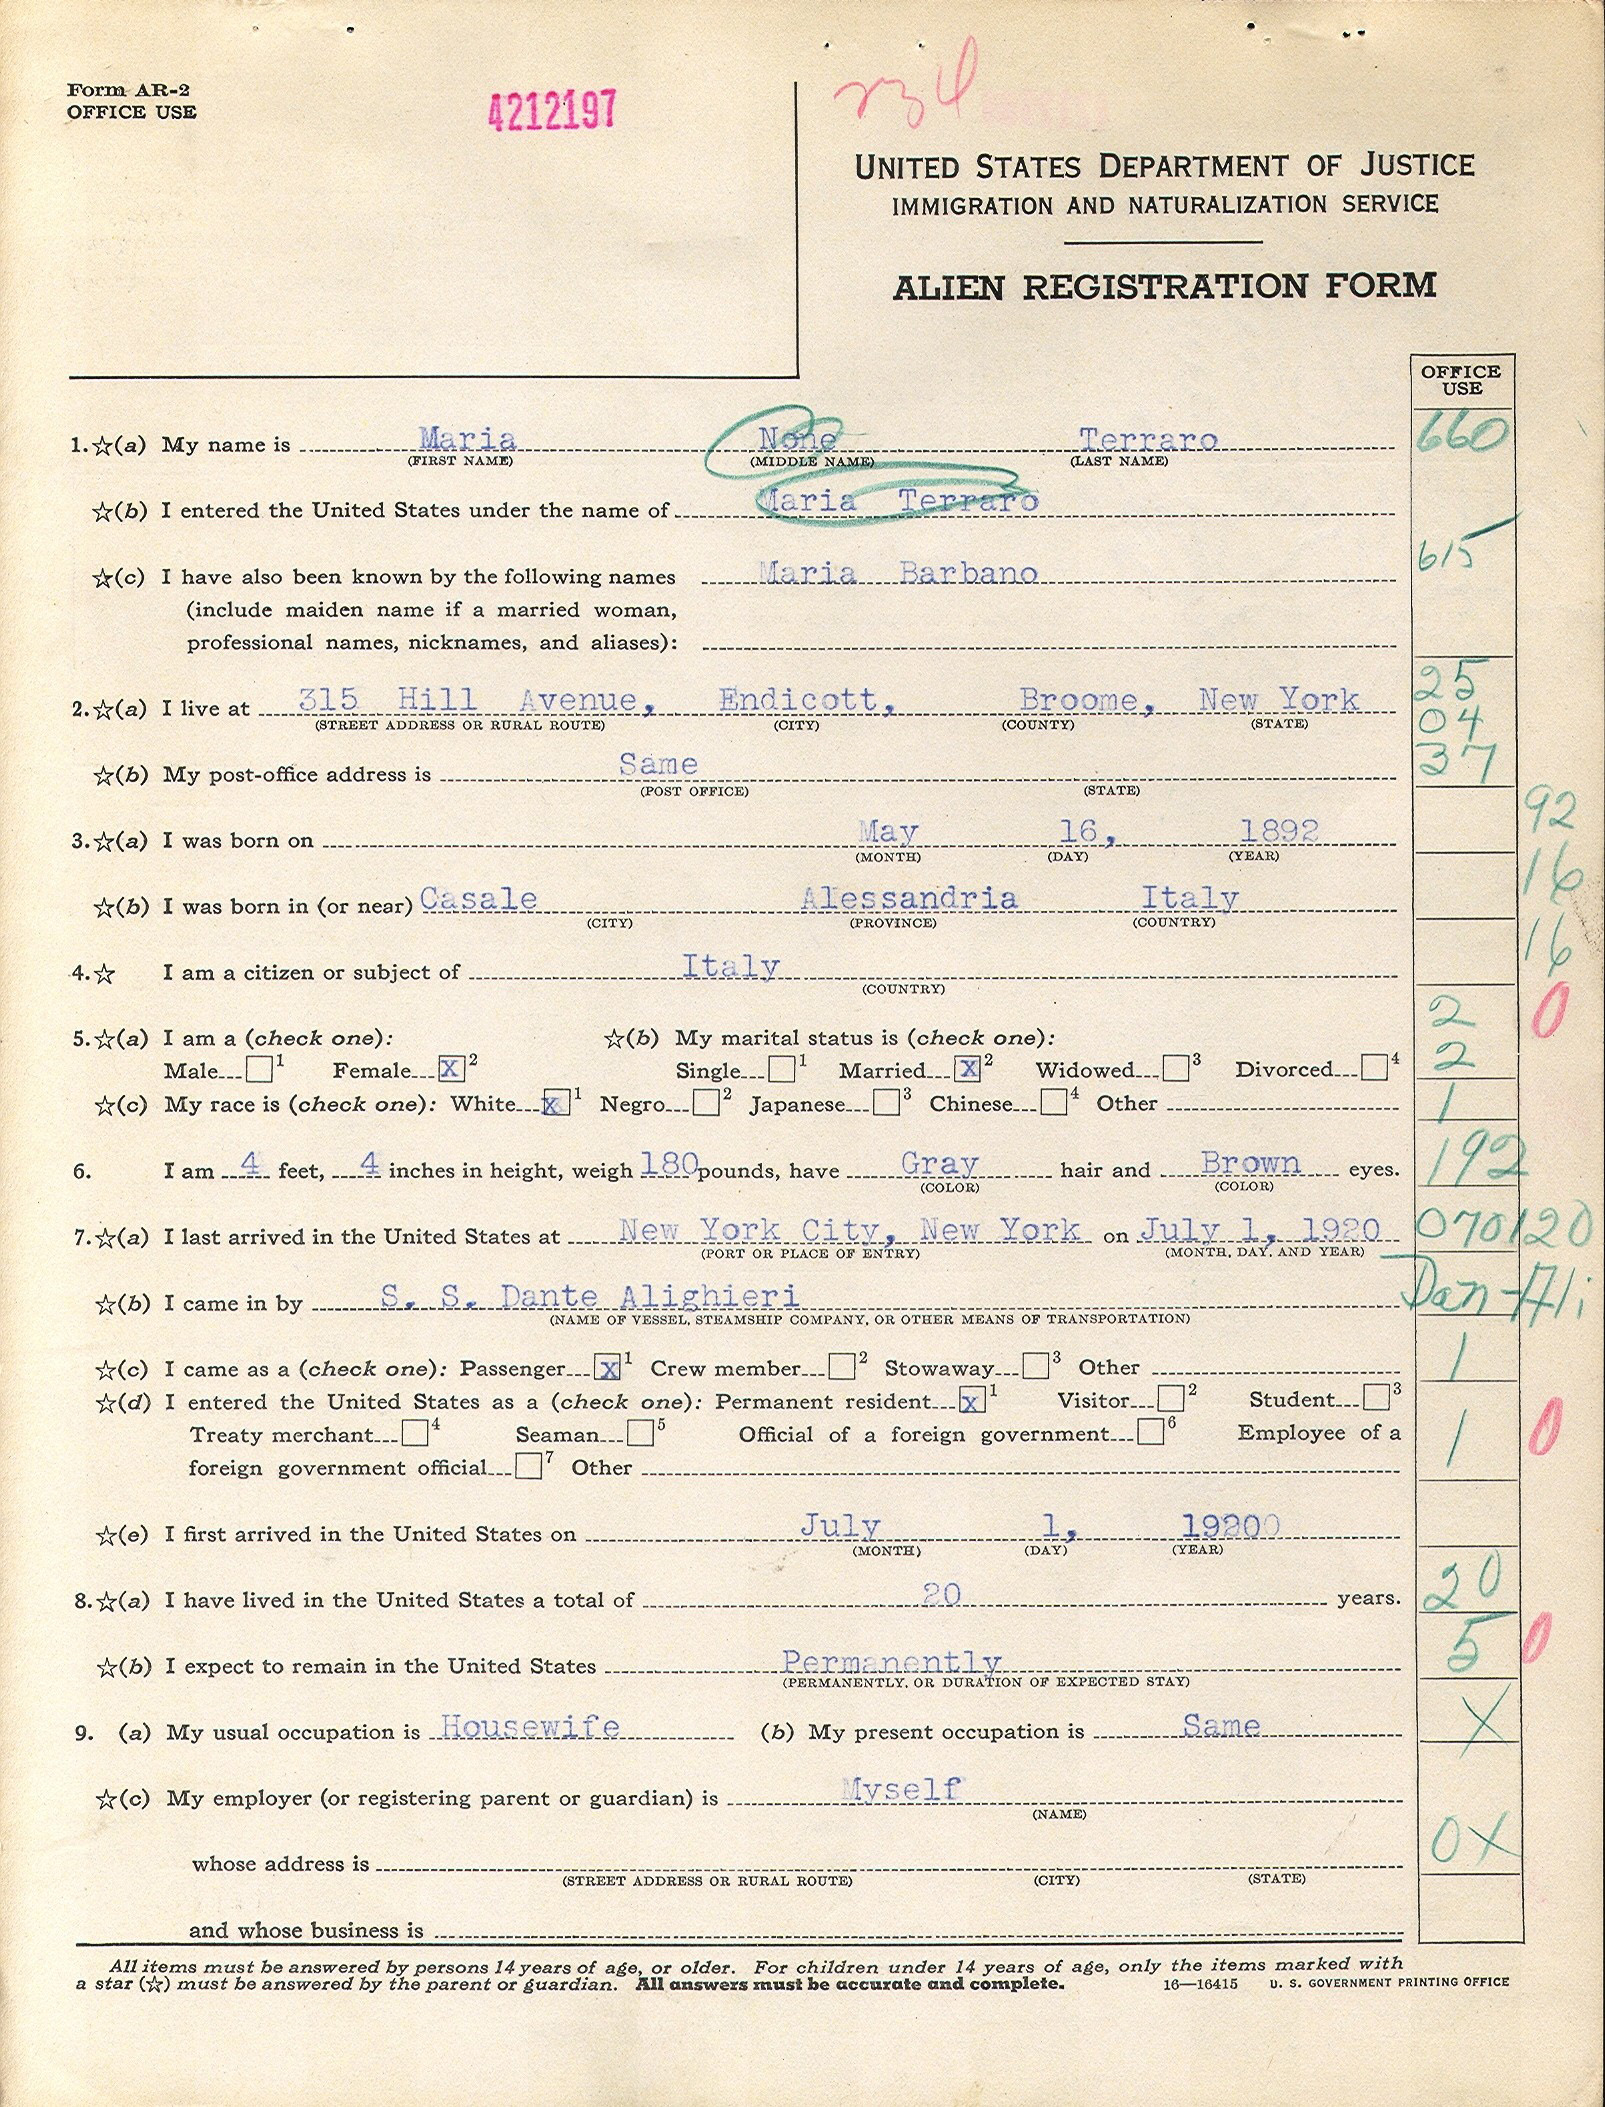 Form AR-2
OFFICE USE
4212197
234
UNITED STATES DEPARTMENT OF JUSTICE
IMMIGRATION AND NATURALIZATION SERVICE
ALIEN REGISTRATION FORM
OFFICE
USE
1. ☆(a) My name is Maria None Terraro 660
(FIRST NAME) (MIDDLE NAME) (LAST NAME)
☆(b) I entered the United States under the name of Maria Terraro
☆(c) I have also been known by the following names Maria Barbano 615
(include maiden name if a married woman,
professional names, nicknames, and aliases):
2. ☆(a) I live at 315 Hill Avenue, Endicott, Broome, New York 25
(STREET ADDRESS OR RURAL ROUTE) (CITY) (COUNTY) (STATE) 04
☆(b) My post-office address is Same 37
(POST OFFICE) (STATE)
3. ☆(a) I was born on May 16, 1892 92
(MONTH) (DAY) (YEAR)
☆(b) I was born in (or near) Casale Alessandria Italy 16
(CITY) (PROVINCE) (COUNTRY)
4. ☆ I am a citizen or subject of Italy 16
(COUNTRY)
5. ☆(a) I am a (check one): ☆(b) My marital status is (check one): 2 0
Male 1 Female X 2 Single 1 Married X 2 Widowed 3 Divorced 4 2
☆(c) My race is (check one): White X 1 Negro 2 Japanese 3 Chinese 4 Other 1
6. I am 4 feet, 4 inches in height, weigh 180 pounds, have Gray hair and Brown eyes. 192
(COLOR) (COLOR)
7. ☆(a) I last arrived in the United States at New York City, New York on July 1, 1920 070120
(PORT OR PLACE OF ENTRY) (MONTH, DAY, AND YEAR)
☆(b) I came in by S. S. Dante Alighieri Dan-Ali
(NAME OF VESSEL, STEAMSHIP COMPANY, OR OTHER MEANS OF TRANSPORTATION)
☆(c) I came as a (check one): Passenger X 1 Crew member 2 Stowaway 3 Other 1
☆(d) I entered the United States as a (check one): Permanent resident X 1 Visitor 2 Student 3
Treaty merchant 4 Seaman 5 Official of a foreign government 6 Employee of a 1 0
foreign government official 7 Other
☆(e) I first arrived in the United States on July 1, 19200
(MONTH) (DAY) (YEAR)
8. ☆(a) I have lived in the United States a total of 20 years. 20
☆(b) I expect to remain in the United States Permanently 5 0
(PERMANENTLY, OR DURATION OF EXPECTED STAY)
9. (a) My usual occupation is Housewife (b) My present occupation is Same X
☆(c) My employer (or registering parent or guardian) is Myself
(NAME)
whose address is 0X
(STREET ADDRESS OR RURAL ROUTE) (CITY) (STATE)
and whose business is
All items must be answered by persons 14 years of age, or older. For children under 14 years of age, only the items marked with
a star (☆) must be answered by the parent or guardian. All answers must be accurate and complete. 16—16415 U. S. GOVERNMENT PRINTING OFFICE